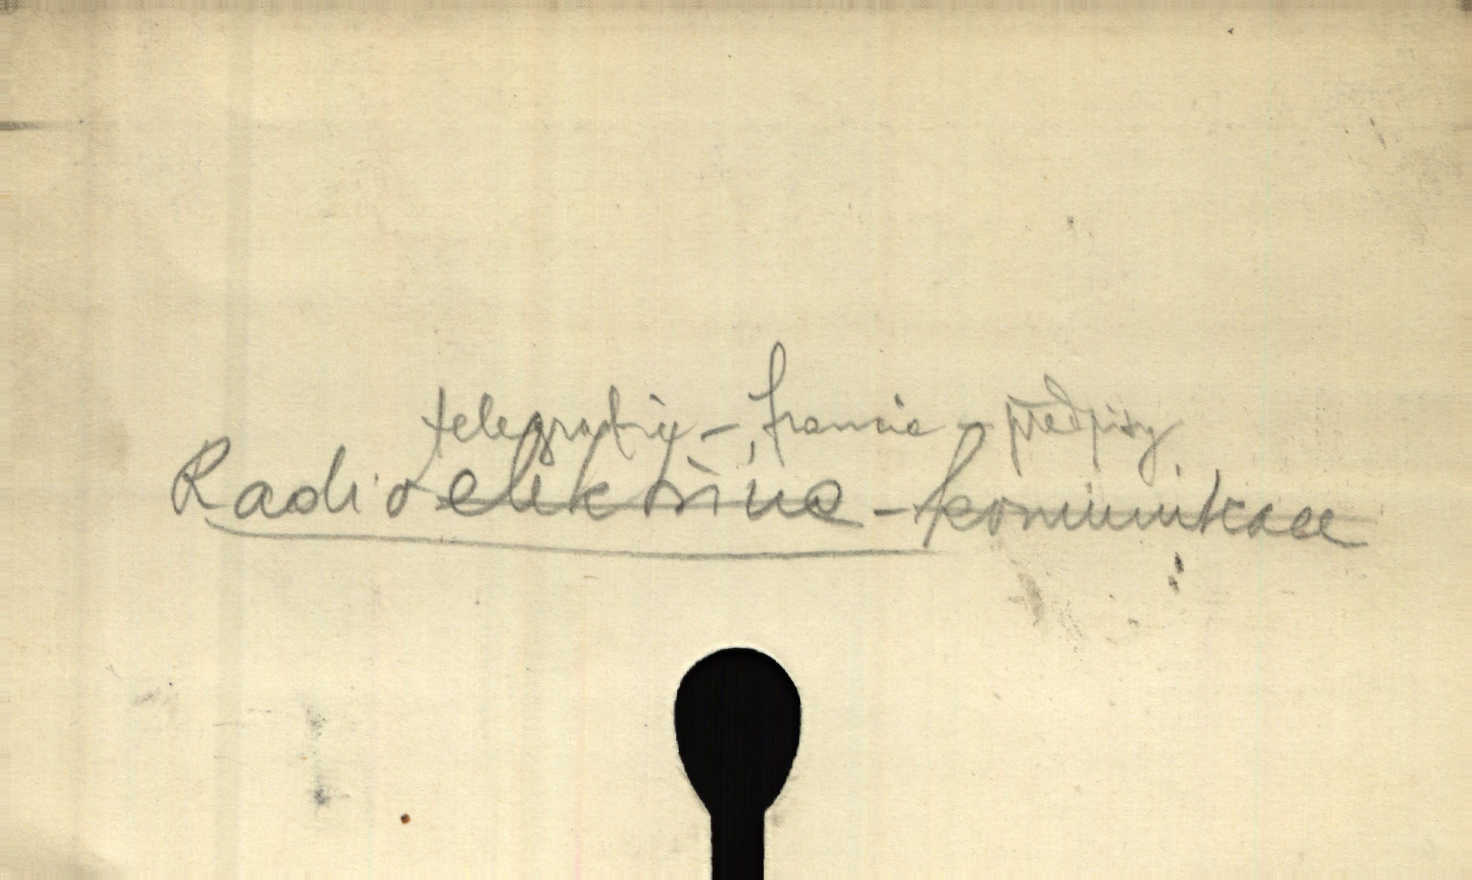 telegrafie - francie - předpisy
Radioelektrine - komunikace